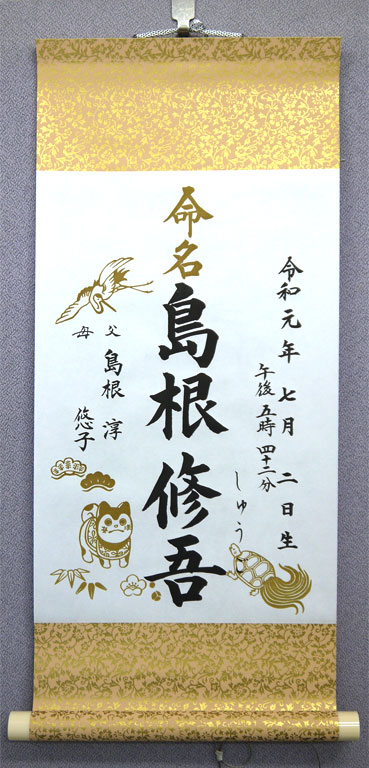 令和元年七月二日生
午後五時四十二分
命名
島根修吾
しゅうご
父 島根 淳
母 悠子